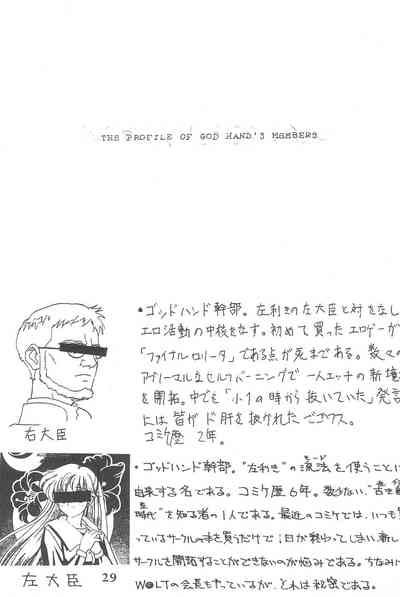 THE PROFILE OF GOD HAND'S MEMBERS
・ゴッドハンド幹部。左利きの左大臣と対をなし
エロ活動の中核をなす。初めて買ったエロゲーが
「ファイナルロリータ」である点が死まである。数々の
アブノーマルなセルフバーニングで一人エッチの新境
を開拓。中でも「小1の時から抜いていた」発言
には皆がド肝を抜かれた
コミケ歴 2年。
右大臣
・ゴッドハンド幹部。"左利き"の流法を使うことに
モード
由来する名である。コミケ歴6年。数少ない
時代"を知る者の1人である。最近のコミケでは、いつも
っているサークルの本を買うだけで1日が終わってしまい、新し
サークルを開拓することができないのが悩みである。ちなみに
W●LTの会長をやっているが、それは秘密である。
左大臣
29